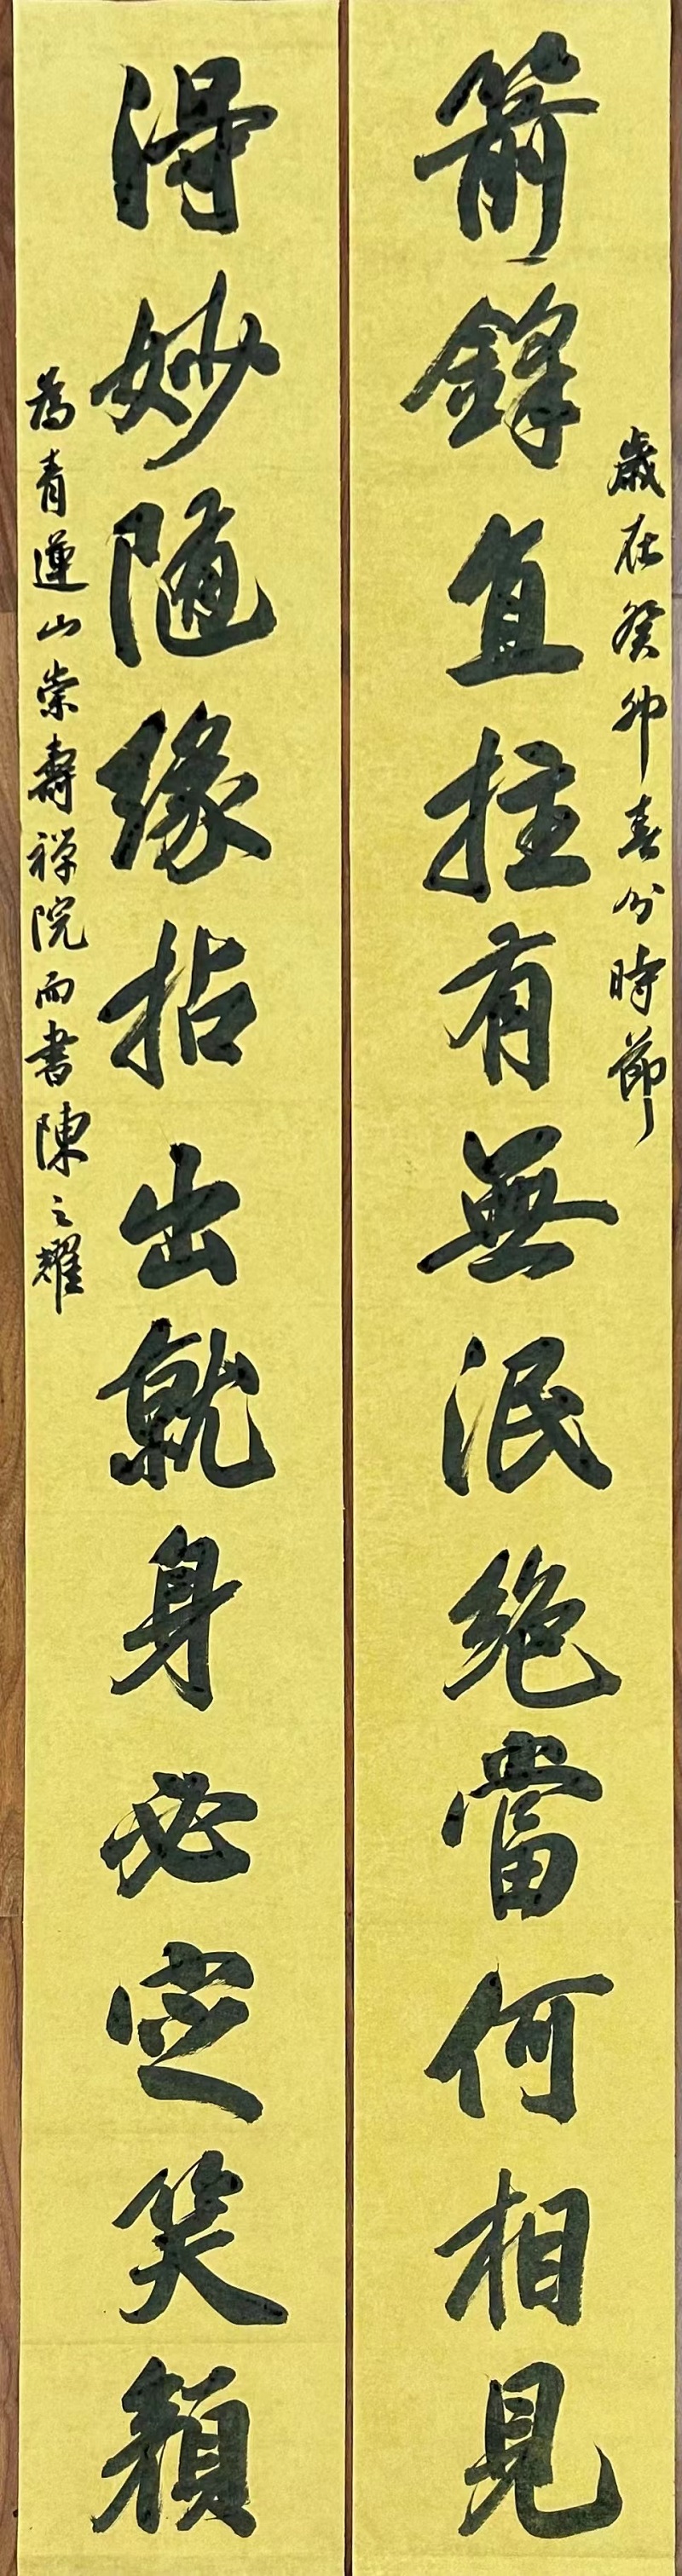 歲在癸卯春分時節
箭鋒直拄有無泯絕當何相見
得妙隨緣拈出就身必定笑顏
為青蓮山崇壽禪院而書陳之耀